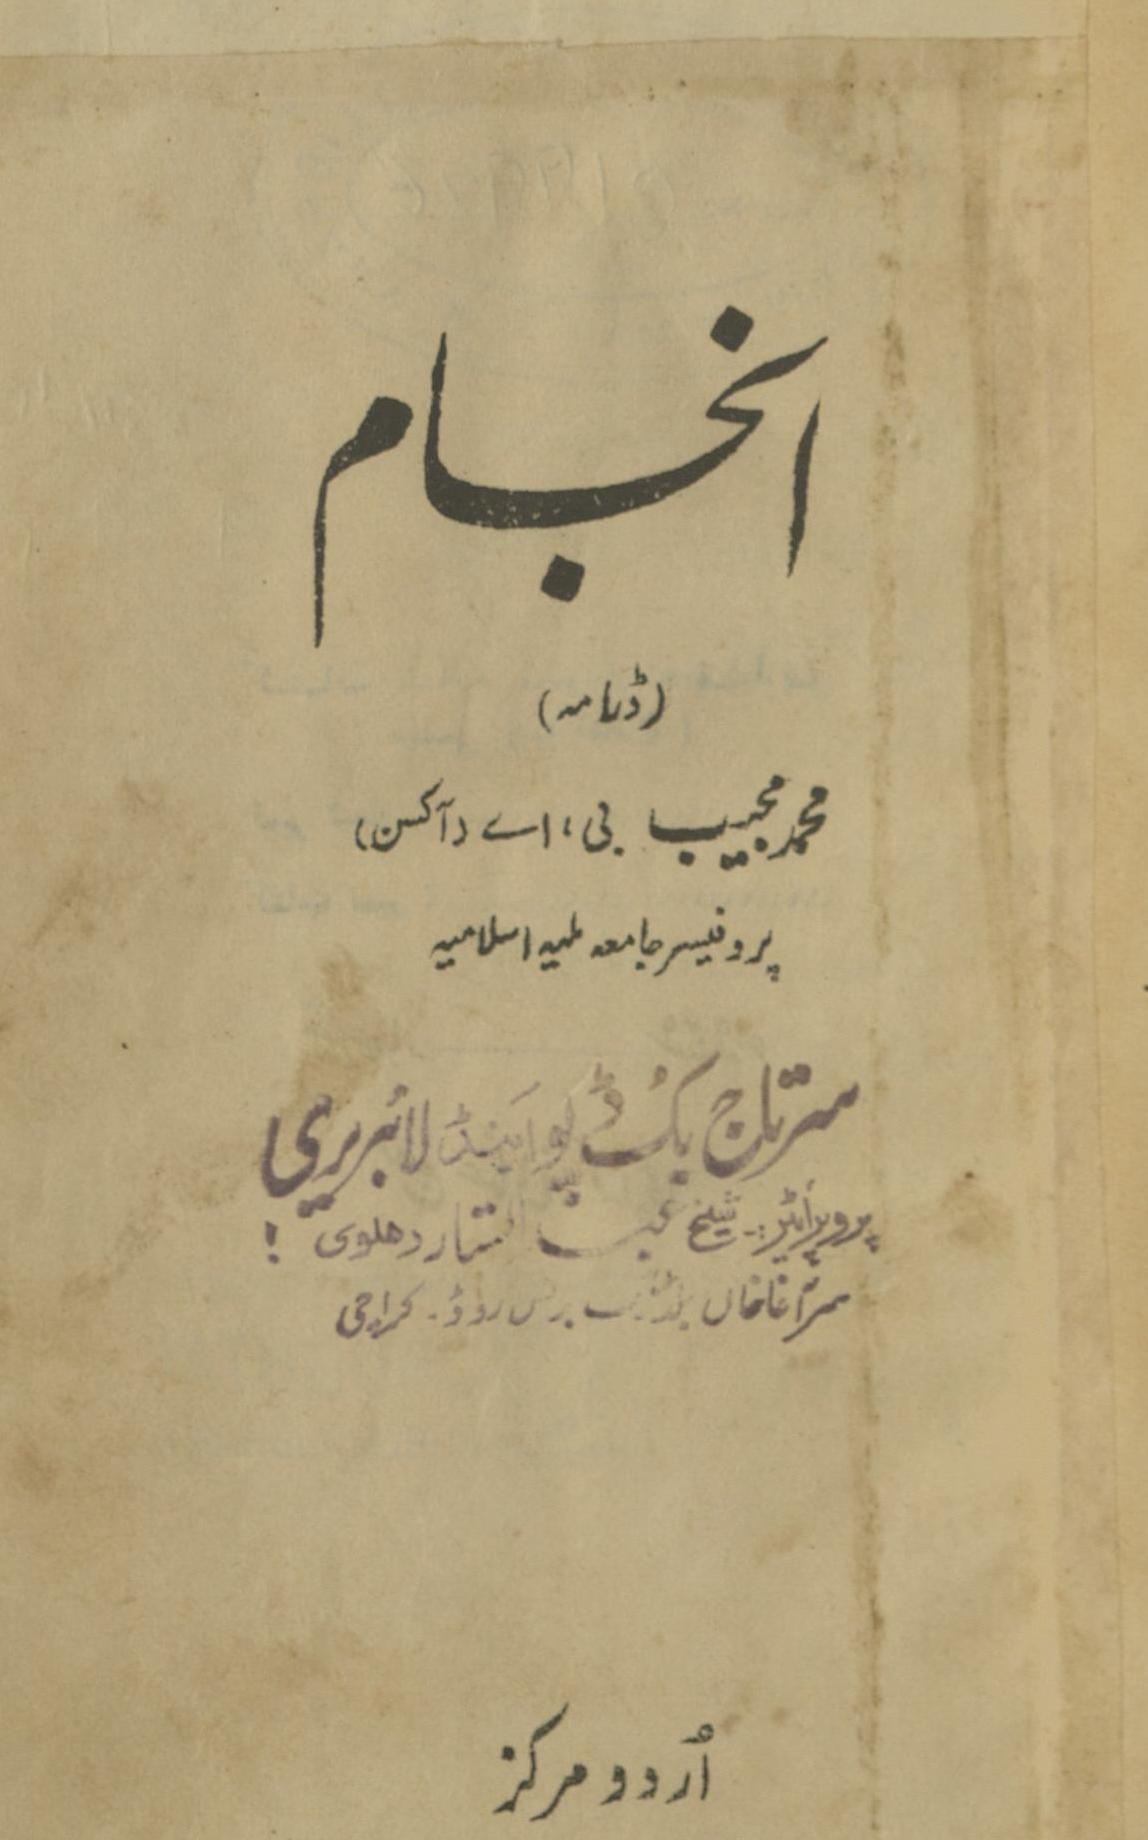 انجام
(ڈرامہ)
محمد مجیب بی، اے (آکسن)
پروفیسر جامعہ ملیہ اسلامیہ
سرتاج بک ڈپو اینڈ لائبریری
پروپرائٹر:۔ شیخ عبد الستار دھلوی !
سر آغا خاں بلڈنگ برنس روڈ۔ کراچی
اُردو مرکز